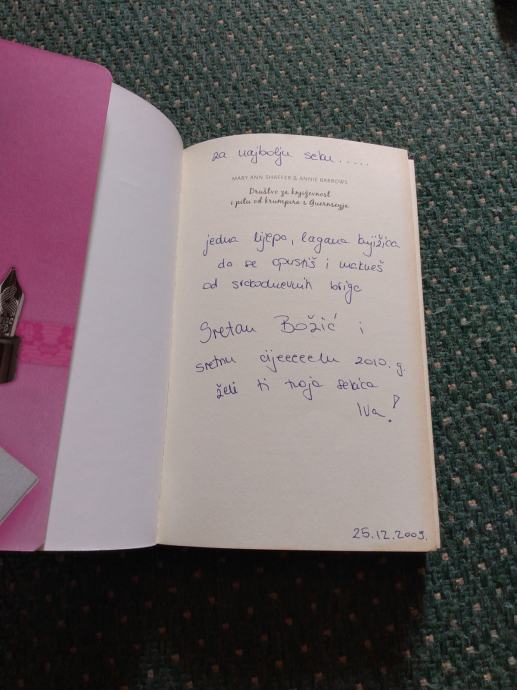 za najbolju seku.....
MARY ANN SHAFFER & ANNIE BARROWS
Društvo za književnost
i pitu od krumpira s Guernseyja
jedna lijepa, lagana knjižica
da se opustiš i makneš
od svakodnevnih briga
Sretan BOŽIĆ i
sretnu cijeeeeelu 2010. g.
želi ti tvoja sekica
Iva!
25.12.2009.